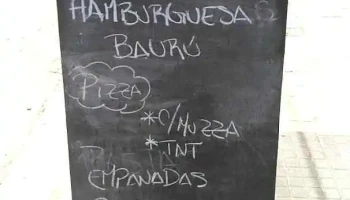 HAMBURGUESA
BAURÚ
PIZZA
*C/MUZZA
*TNT
EMPANADAS